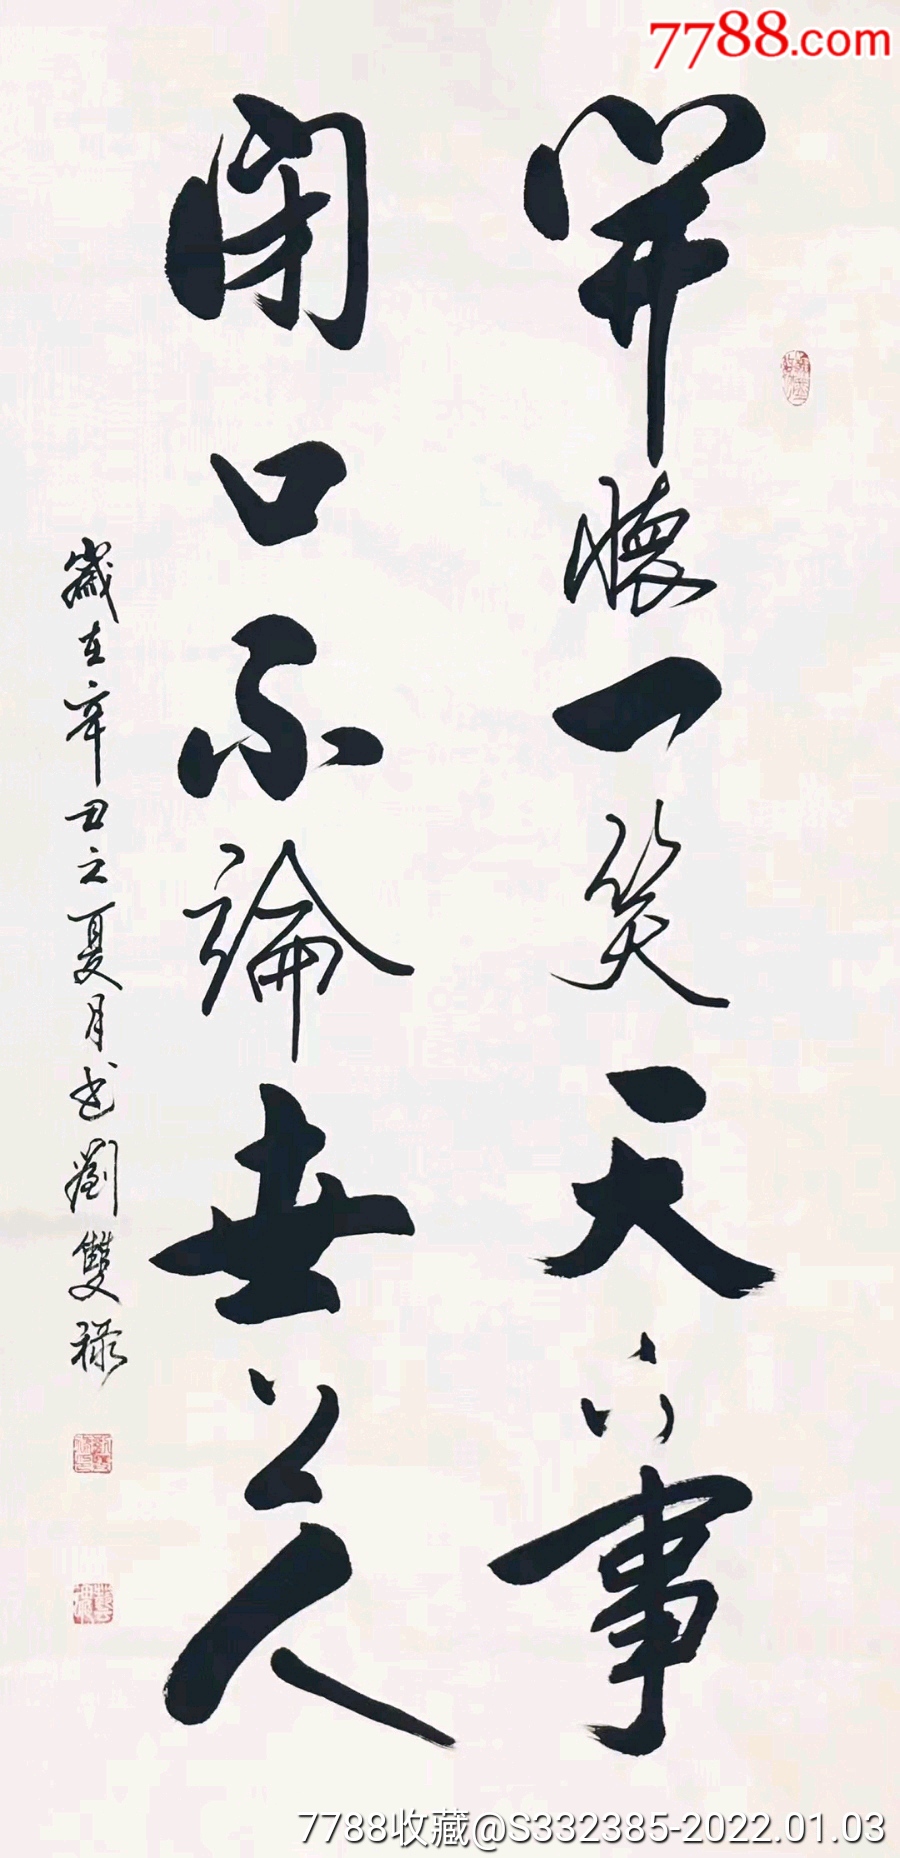 7788.com
開懷一笑天下事
閉口不論世上人
歲在辛丑之夏月书劉雙祿
7788收藏@S332385-2022.01.03